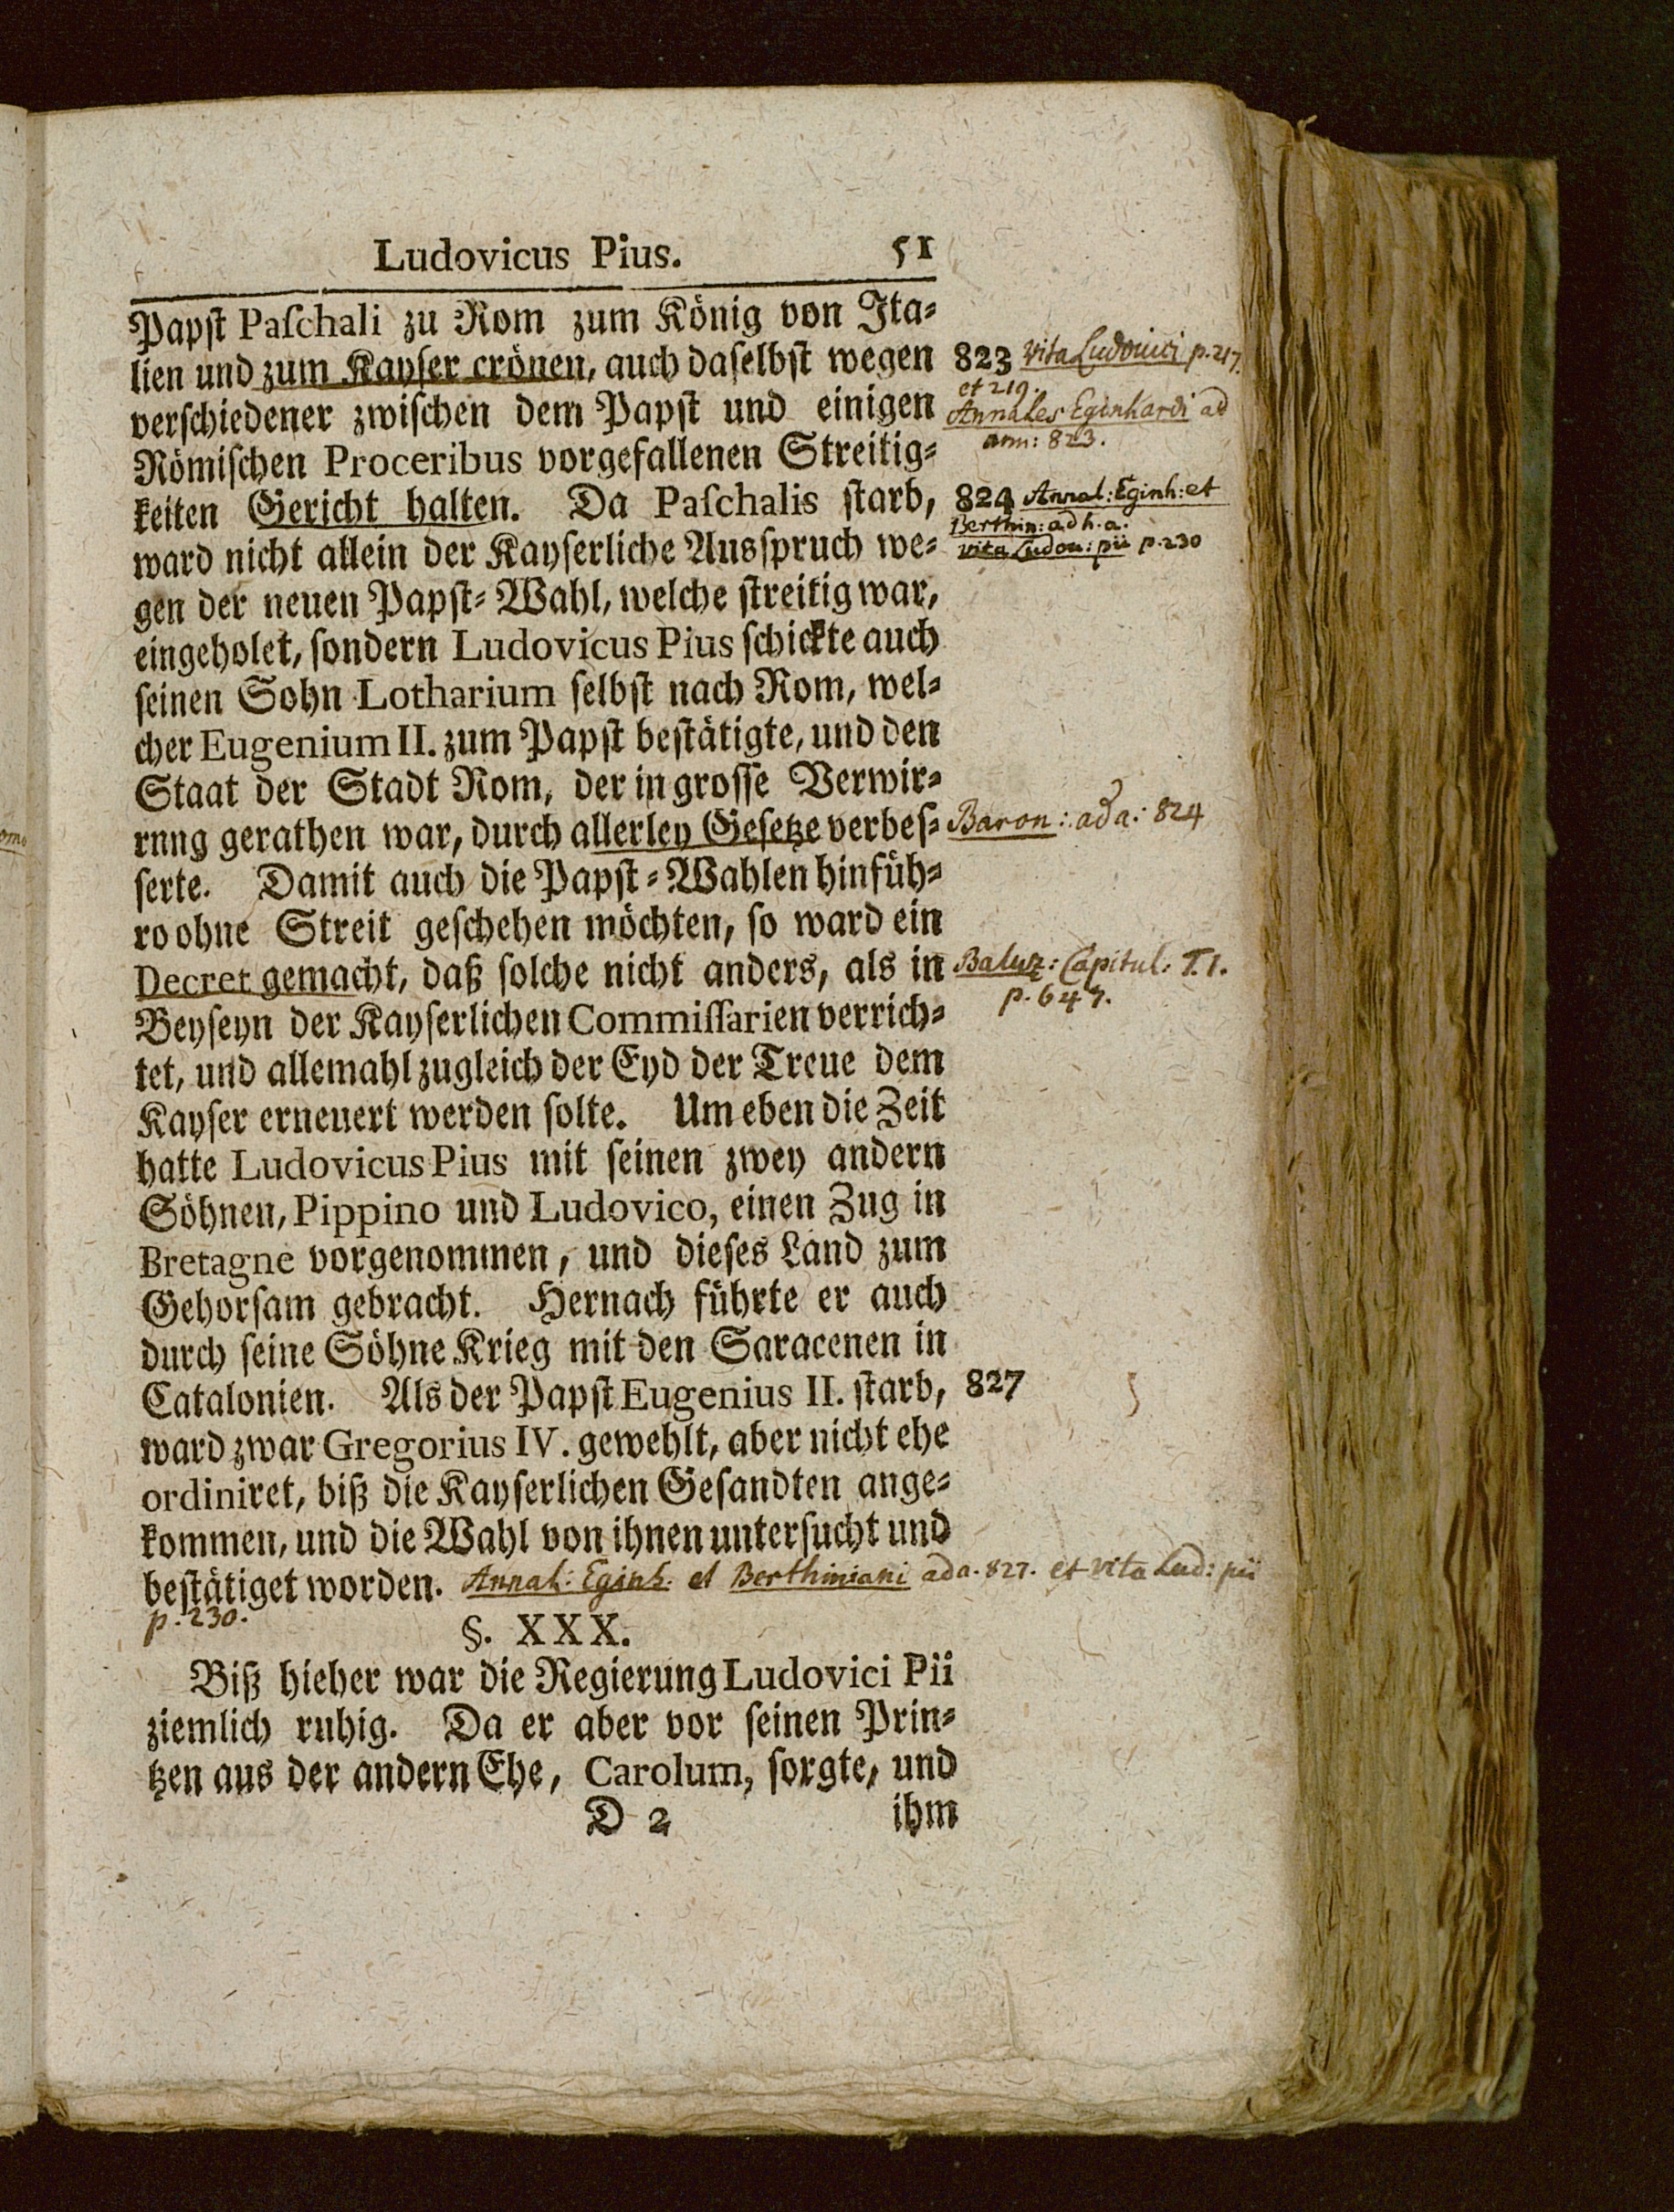 Ludovicus Pius. 51
Papst Paſchali zu Rom zum König von Ita⸗
lien und zum Kayſer crönen, auch daſelbſt wegen 823 Vita Ludouici p. 217.
et 219.
verſchiedener zwiſchen dem Papſt und einigen Annales Eginhardi ad
ann: 823.
Römiſchen Proceribus vorgefallenen Streitig⸗
keiten Gericht halten. Da Paſchalis ſtarb, 824 Annal: Eginh: et
Berthin: ad h. a.
ward nicht allein der Kayſerliche Ausſpruch we⸗ vita Ludou: pii p. 230
gen der neuen Papſt⸗Wahl, welche ſtreitig war,
eingeholet, ſondern Ludovicus Pius ſchickte auch
ſeinen Sohn Lotharium ſelbſt nach Rom, wel⸗
cher Eugenium II. zum Papſt beſtätigte, und den
Staat der Stadt Rom, der in groſſe Verwir⸗
rnng gerathen war, durch allerley Geſetze verbeſ⸗ Baron: ad a: 824
ſerte. Damit auch die Papſt⸗Wahlen hinfüh⸗
ro ohne Streit geſchehen möchten, ſo ward ein
Decret gemacht, daß ſolche nicht anders, als in Baluz: Capitul: T. 1.
p. 647.
Beyſeyn der Kayſerlichen Commiſſarien verrich⸗
tet, und allemahl zugleich der Eyd der Treue dem
Kayſer erneuert werden ſolte. Um eben die Zeit
hatte Ludovicus Pius mit ſeinen zwey andern
Söhnen, Pippino und Ludovico, einen Zug in
Bretagne vorgenommen, und dieſes Land zum
Gehorſam gebracht. Hernach führte er auch
durch ſeine Söhne Krieg mit den Saracenen in
Catalonien. Als der Papſt Eugenius II. ſtarb, 827
ward zwar Gregorius IV. gewehlt, aber nicht ehe
ordiniret, biß die Kayſerlichen Geſandten ange⸗
kommen, und die Wahl von ihnen unterſucht und
beſtätiget worden. Annal: Eginh. et Berthiniani ad a. 827. et vita Lud: pii
p. 230.
§. XXX.
Biß hieher war die Regierung Ludovici Pii
ziemlich ruhig. Da er aber vor ſeinen Prin⸗
tzen aus der andern Ehe, Carolum, ſorgte, und
D 2 ihm